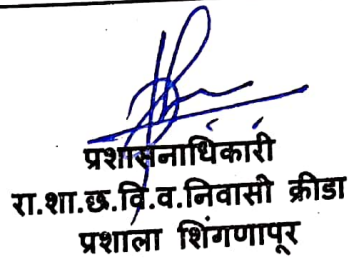 प्रशासनाधिकारी
रा.शा.छ.वि.व.निवासी क्रीडा
प्रशाला शिंगणापूर